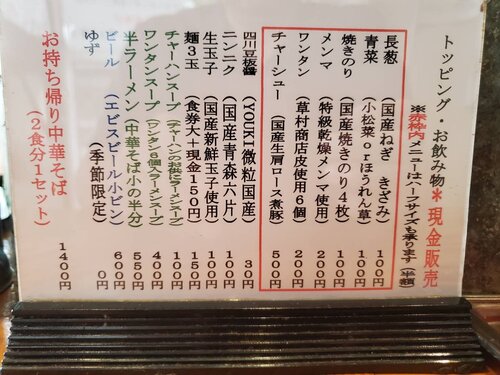 トッピング・お飲み物*現金販売
※赤枠内メニューはハーフサイズも承ります（半額）
長葱（国産ねぎ　きざみ）１００
青菜（小松菜orほうれん草）１００
焼きのり（国産焼きのり４枚）１００
メンマ（特級乾燥メンマ使用）２００
ワンタン（草村商店皮使用６個）２００
チャーシュー（国産生肩ロース煮豚）５００
四川豆板醤（YOUKI微粒国産）３０
ニンニク（国産青森六片）１００
生玉子（国産新鮮玉子使用）１００
麺３玉（食券大＋現金１５０円）１５０
チャーハンスープ（チャーハンのお供にラーメンスープ）１００
ワンタンスープ（ワンタン６個入ラーメンスープ）４００
半ラーメン（中華そば小の半分）５５０
ビール（エビスビール小ビン）６００
ゆず（季節限定）０円
お持ち帰り中華そば（２食分１セット）１４００